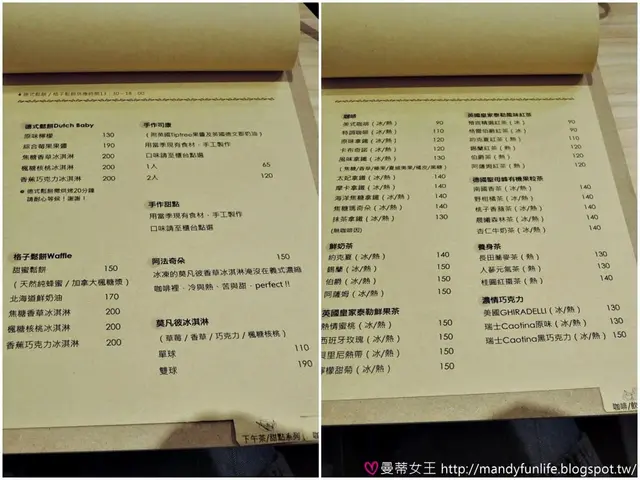 德式鬆餅Dutch Baby
原味檸檬 130
綜合莓果果醬 190
焦糖香草冰淇淋 200
楓糖核桃冰淇淋 200
香蕉巧克力冰淇淋 200
＊德式鬆餅需烘烤20分鐘
請耐心等候！謝謝！
手作司康
（附英國Tiptree果醬及英國德文郡奶油）
用當季現有食材．手工製作
口味請至櫃台點選
1人 65
2人 120
手作甜點
用當季現有食材．手工製作
口味請至櫃台點選
格子鬆餅Waffle
甜蜜鬆餅 150
（天然純蜂蜜 / 加拿大楓糖漿）
北海道鮮奶油 170
焦糖香草冰淇淋 200
楓糖核桃冰淇淋 200
香蕉巧克力冰淇淋 200
阿法奇朵 150
冰凍的莫凡彼香草冰淇淋淹沒在義式濃縮
咖啡裡．冷與熱、苦與甜．perfect !!
莫凡彼冰淇淋
（草莓 / 香草 / 巧克力 / 楓糖核桃）
單球 110
雙球 190
下午茶/甜點系列
咖啡
美式咖啡（冰/熱） 90
特調咖啡（冰/熱） 110
原味拿鐵（冰/熱） 120
卡布奇諾（冰/熱） 120
風味拿鐵（冰/熱） 130
太妃拿鐵（冰/熱） 140
摩卡拿鐵（冰/熱） 140
海洋焦糖拿鐵（冰/熱） 140
焦糖瑪奇朵（冰/熱） 140
抹茶拿鐵（冰/熱） 130
（無咖啡因）
鮮奶茶
約克夏（冰/熱） 140
錫蘭（冰/熱） 140
伯爵（冰/熱） 140
阿薩姆（冰/熱） 140
英國皇家泰勒鮮果茶
熱情蜜桃（冰/熱） 150
西班牙玫瑰（冰/熱） 150
里尼熱帶（冰/熱） 150
檸檬甜菊（冰/熱） 150
英國皇家泰勒風味紅茶
格雷伯爵紅茶（冰） 90
約克夏紅茶（熱） 120
錫蘭紅茶（熱） 120
伯爵茶（熱） 120
阿薩姆紅茶（熱） 120
德國聖母峰有機果粒茶
南國香茶（冰/熱） 140
野柑橘茶（冰/熱） 140
桃子香蘋茶（冰/熱） 140
晨曦森林茶（冰/熱） 140
杏仁牛奶茶（冰/熱） 140
養身茶
長田蕎麥茶（熱） 130
人蔘元氣茶（熱） 130
桂圓紅棗茶（熱） 130
濃情巧克力
美國GHIRADELLI（冰/熱） 130
瑞士Caotina原味（冰/熱） 150
瑞士Caotina黑巧克力（冰/熱） 150
咖啡/飲
曼蒂女王 http://mandyfunlife.blogspot.tw/